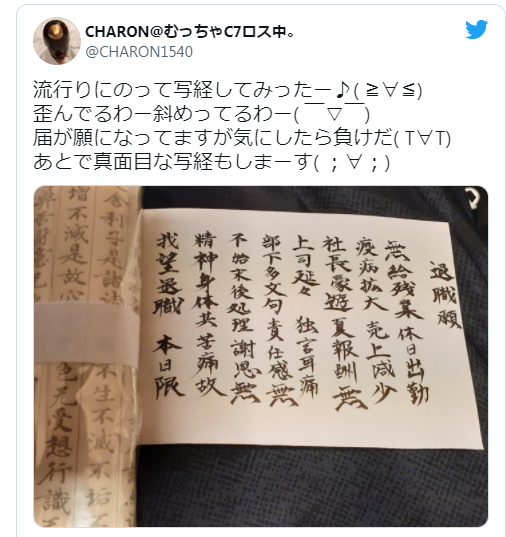 CHARON@むっちゃC7ロス中。
@CHARON1540
流行りにのって写経してみったー♪(≧∀≦)
歪んでるわー斜めってるわー(￣▽￣)
届が願になってますが気にしたら負けだ(T∀T)
あとで真面目な写経もしまーす(；∀；)
退職願
無給残業 休日出勤
疫病拡大 売上減少
社長豪遊 夏報酬無
上司延々 独言耳痛
部下多文句 責任感無
不始末後処理 謝恩無
精神身体共苦痛故
我望退職 本日限
舍利子是諸法
不生不滅不垢不
増不減是故空
色无受想行識